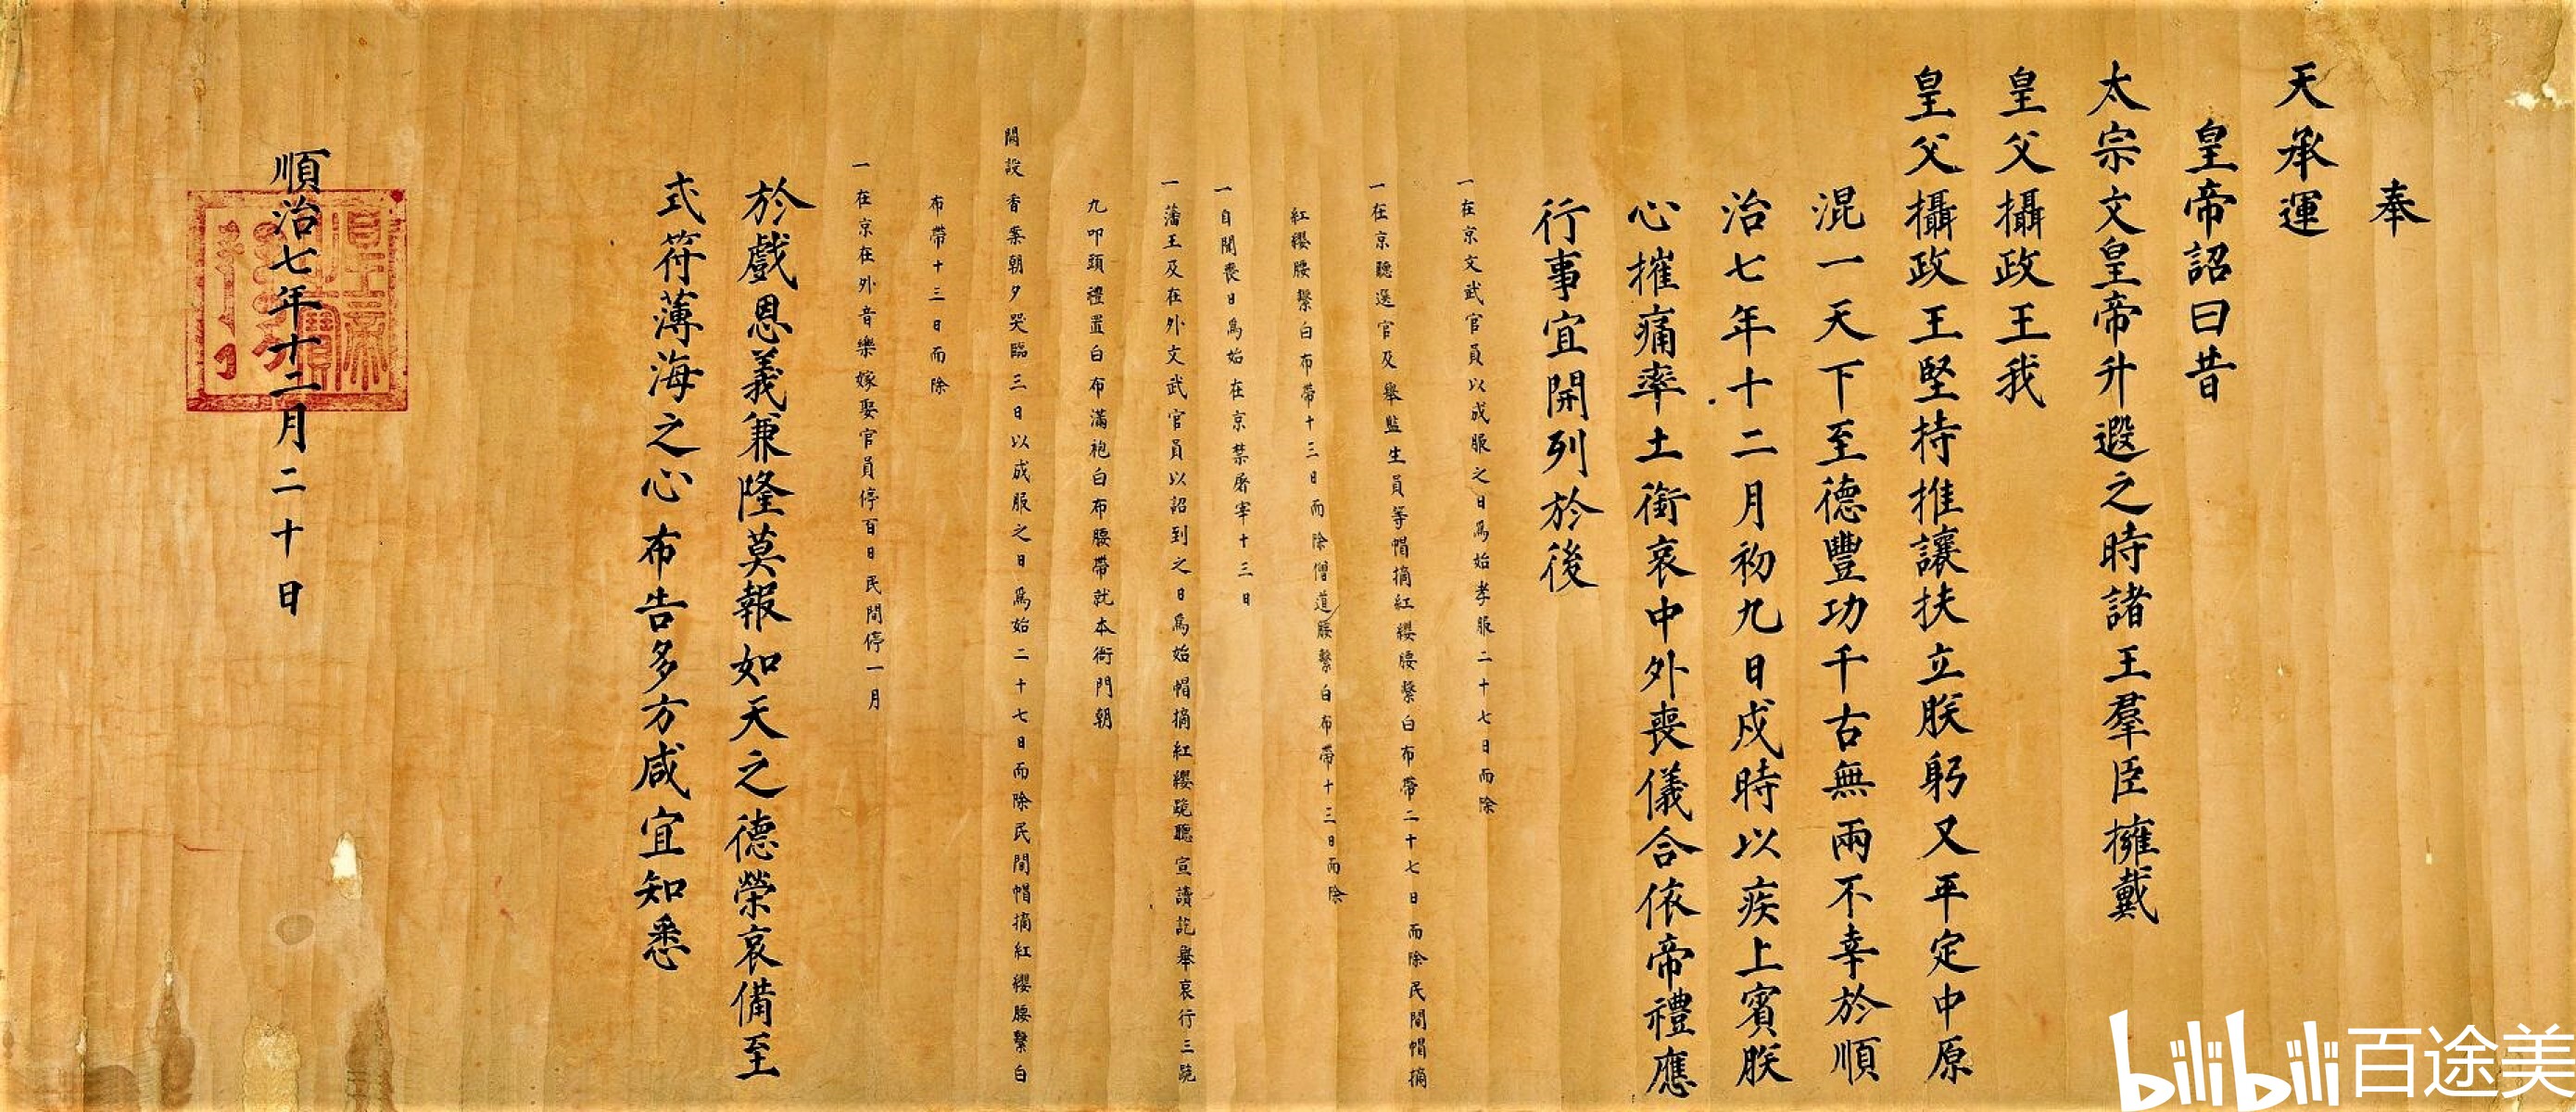 奉
天承運
皇帝詔曰昔
太宗文皇帝升遐之時諸王羣臣擁戴
皇父攝政王我
皇父攝政王堅持推讓扶立朕躬又平定中原
混一天下至德豐功千古無兩不幸於順
治七年十二月初九日戌時以疾上賓朕
心摧痛率土銜哀中外喪儀合依帝禮應
行事宜開列於後
一在京文武官員以成服之日爲始孝服二十七日而除
一在京聽選官及舉監生員等帽摘紅纓腰繫白布帶二十七日而除民間帽摘
紅纓腰繫白布帶十三日而除僧道腰繫白布帶十三日而除
一自聞喪日爲始在京禁屠宰十三日
一藩王及在外文武官員以詔到之日爲始帽摘紅纓跪聽宣讀訖舉哀行三跪
九叩頭禮置白布滿袍白布腰帶就本衙門朝
闕設香案朝夕哭臨三日以成服之日爲始二十七日而除民間帽摘紅纓腰繫白
布帶十三日而除
一在京在外音樂嫁娶官員停百日民間停一月
於戲恩義兼隆莫報如天之德榮哀備至
式符薄海之心布告多方咸宜知悉
順治七年十二月二十日
皇帝之寶
bilibili 百途美